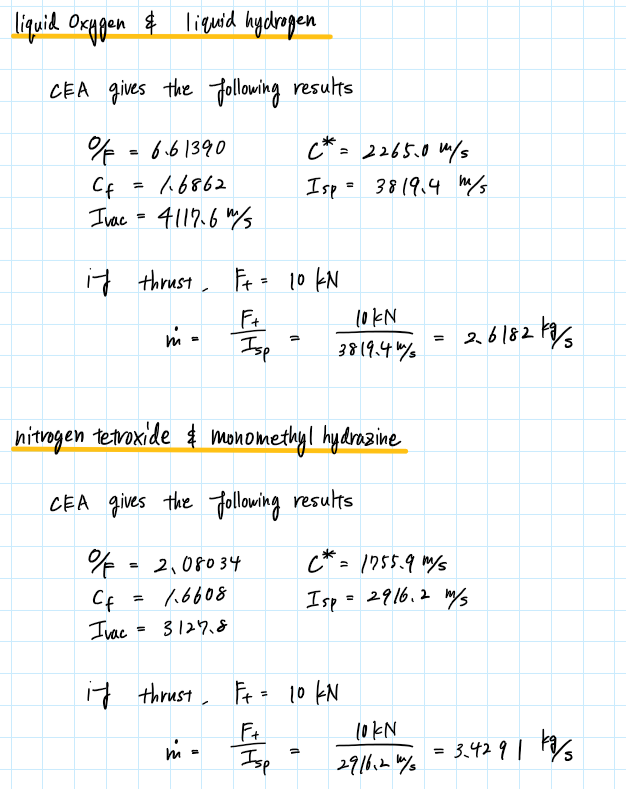 liquid Oxygen & liquid hydrogen
CEA gives the following results
O/F = 6.61390 C* = 2265.0 m/s
Cf = 1.6862 Isp = 3819.4 m/s
Ivac = 4117.6 m/s
if thrust, Ft = 10 kN
ṁ = Ft/Isp = 10 kN/3819.4 m/s = 2.6182 kg/s
nitrogen tetroxide & monomethyl hydrazine
CEA gives the following results
O/F = 2.08034 C* = 1755.9 m/s
Cf = 1.6608 Isp = 2916.2 m/s
Ivac = 3127.8
if thrust, Ft = 10 kN
ṁ = Ft/Isp = 10 kN/2916.2 m/s = 3.4291 kg/s